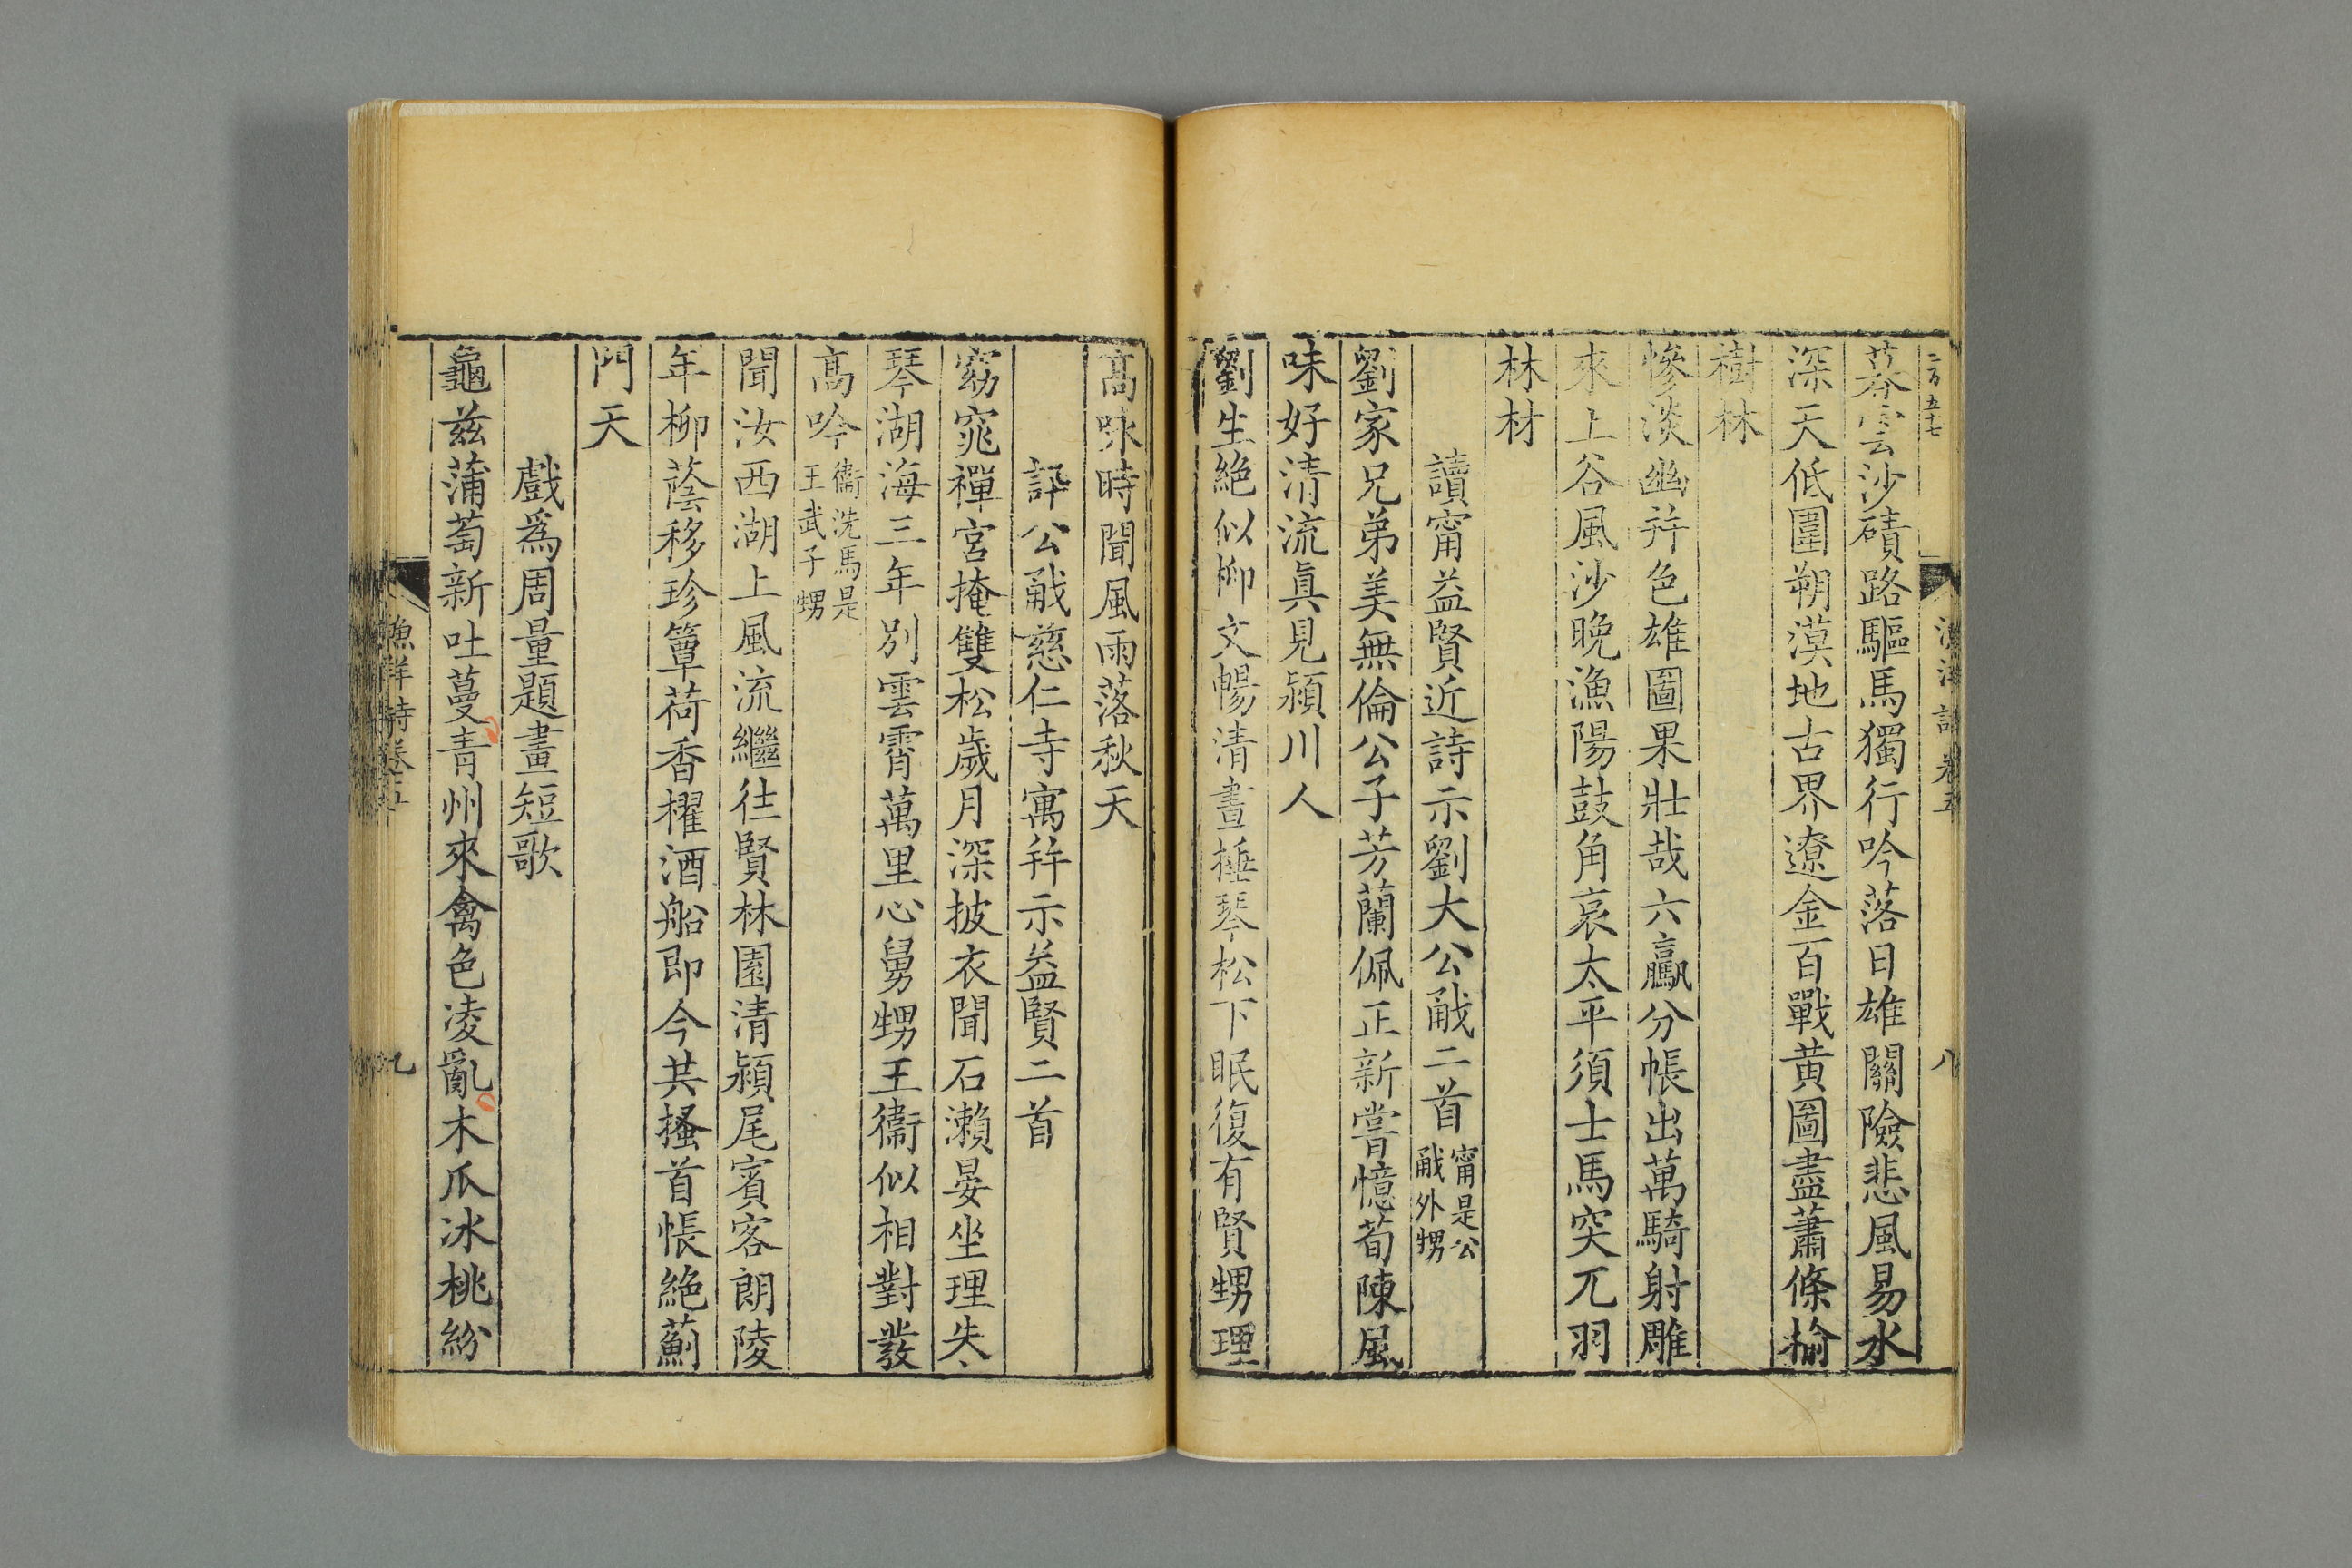 暮雲沙磧路驅馬獨行吟落日雄關險悲風易水
深天低圍朔漠地古界遼金百戰黃圖盡蕭條榆
樹林
慘淡幽并色雄圖果壯哉六驘分帳出萬騎射雕
來上谷風沙晚漁陽鼓角哀太平須士馬突兀羽
林材
讀甯益賢近詩示劉大公㦷二首
甯是公
㦷外甥
劉家兄弟美無倫公子芳蘭佩正新嘗憶荀陳風
味好清流眞見潁川人
劉生絕似柳文暢清晝捶琴松下眠復有賢甥理
高咏時聞風雨落秋天
訃公㦷慈仁寺寓幷示益賢二首
窈窕禪宮掩雙松歲月深披衣聞石瀨晏坐理朱
琴湖海三年別雲霄萬里心舅甥王衞似相對發
高吟
衞洗馬是
王武子甥
聞汝西湖上風流繼往賢林園清潁尾賓客朗陵
年柳蔭移珍簟荷香櫂酒船即今共搔首悵絕薊
門天
戲爲周量題畫短歌
龜兹蒲萄新吐蔓青州來禽色凌亂木瓜冰桃紛
漁洋詩卷五
九
漁洋詩卷五
八